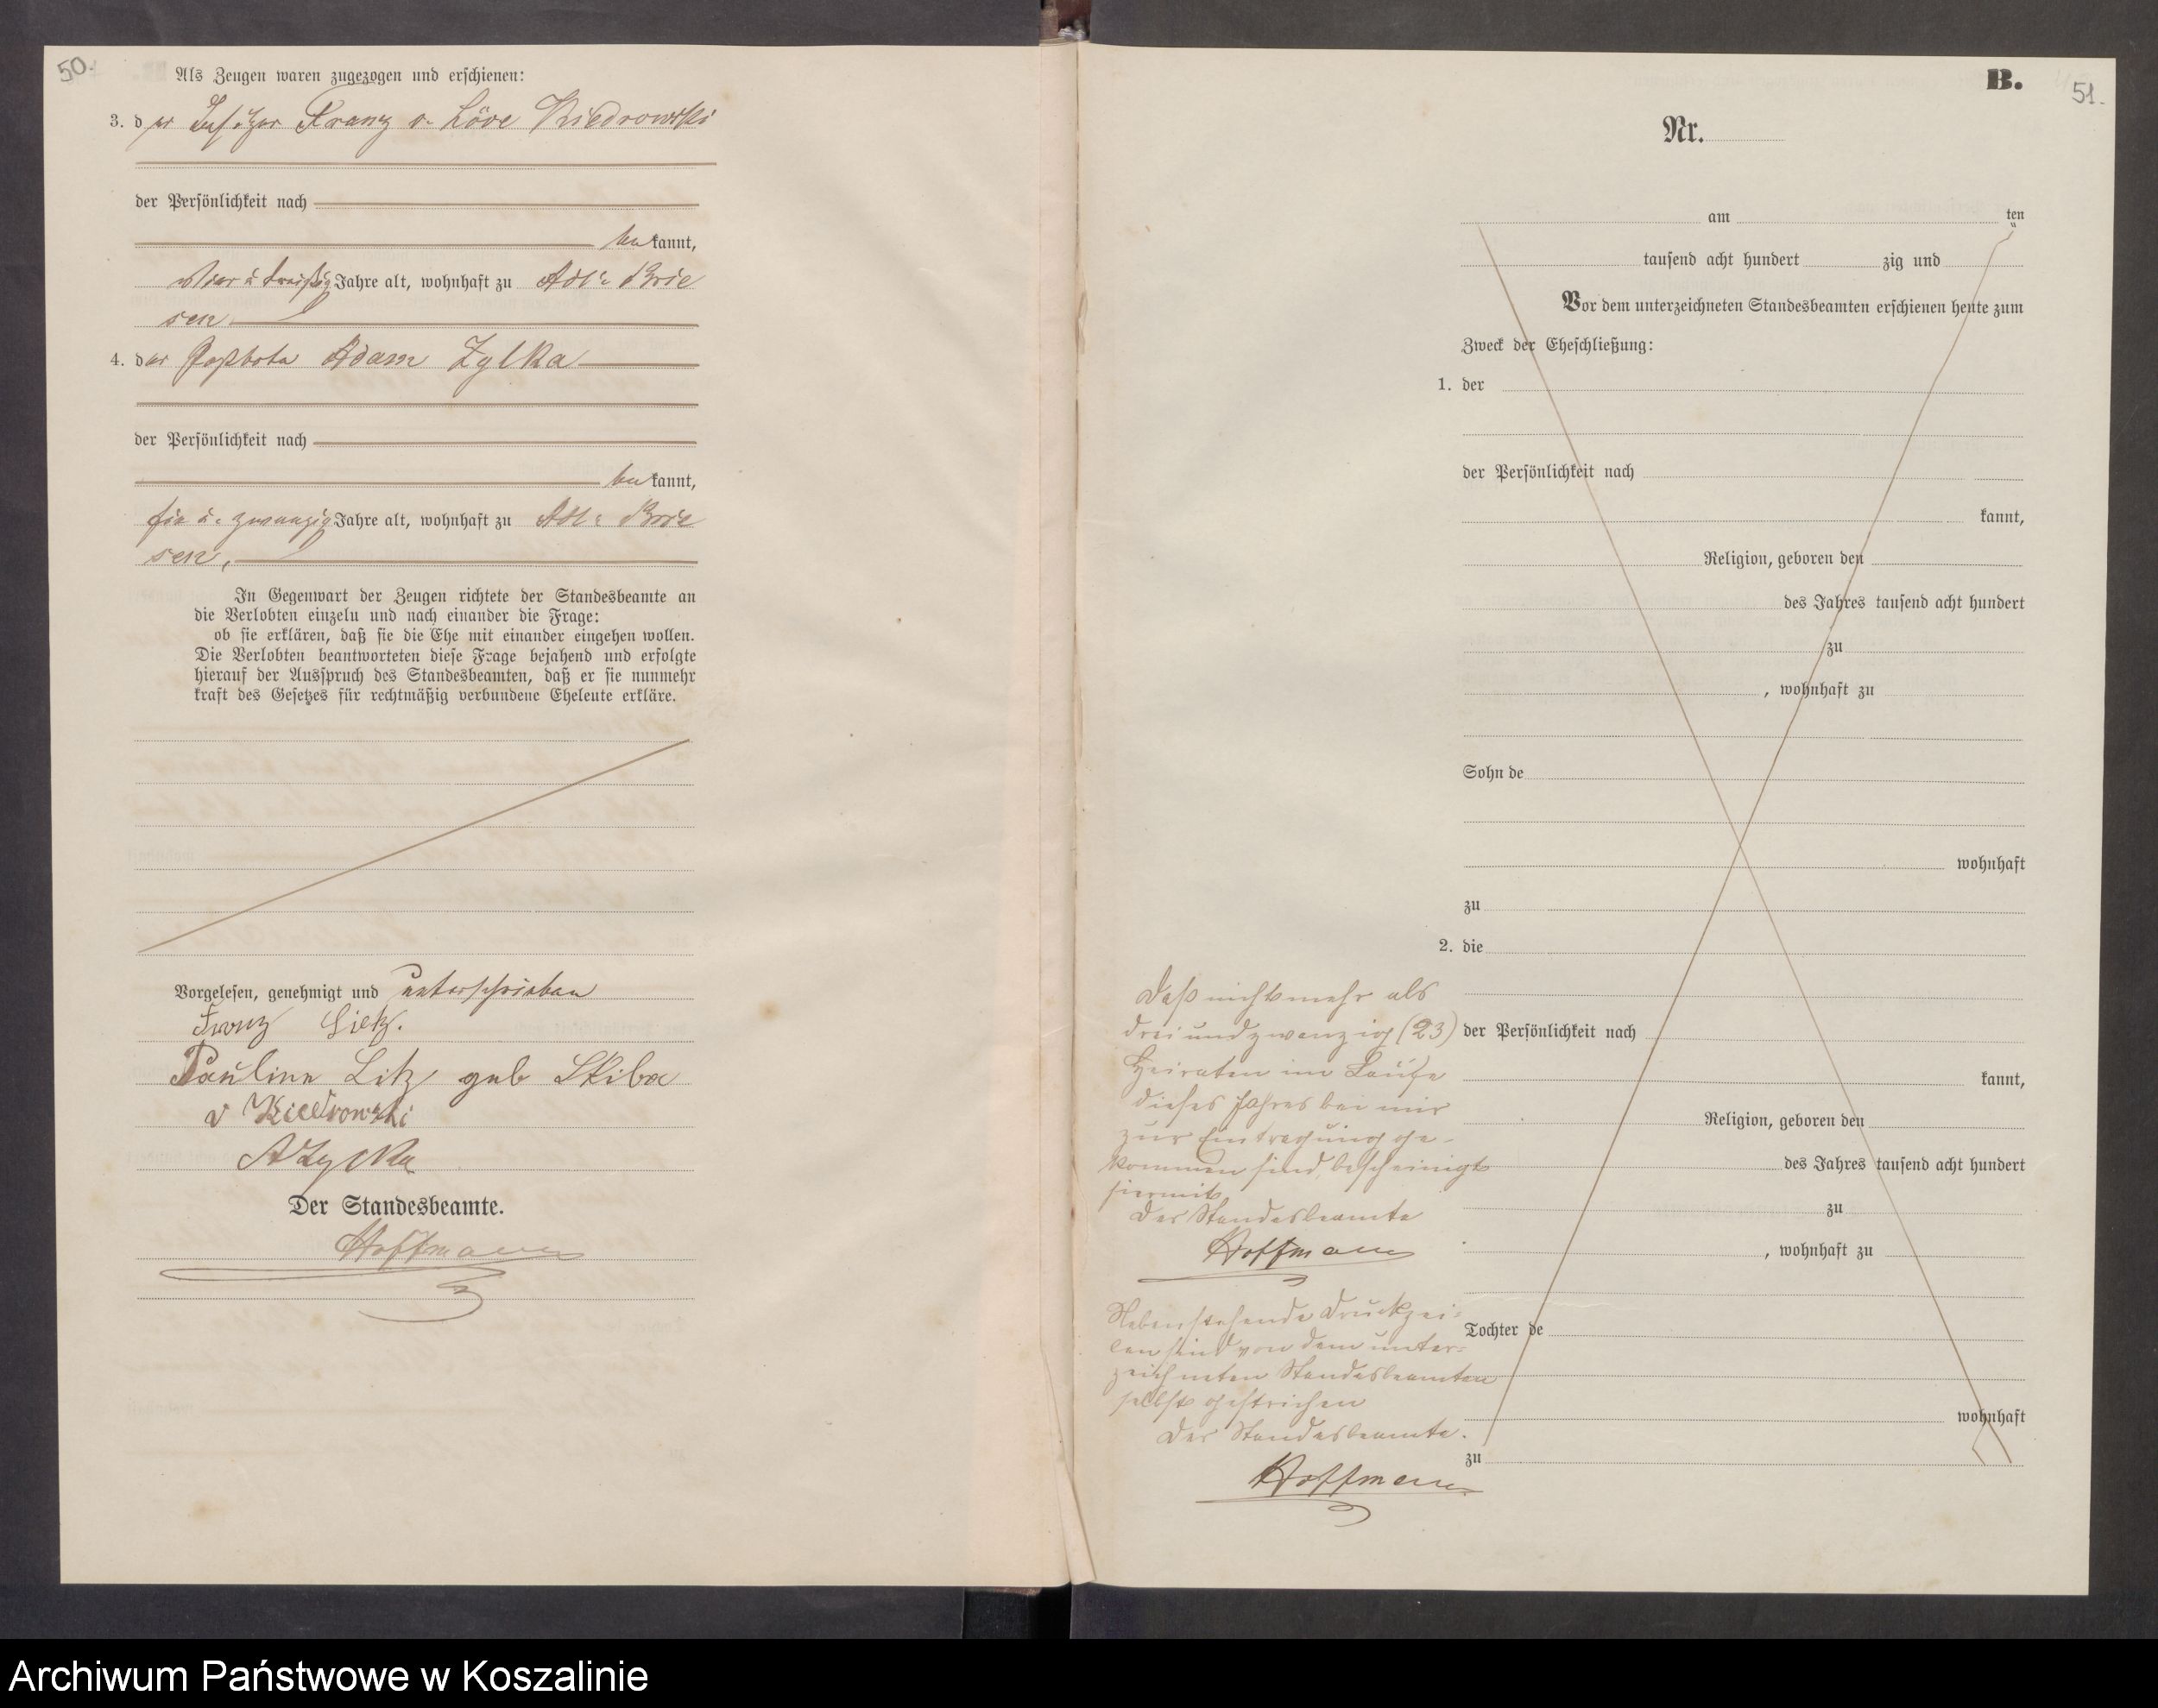 50.
Als Zeugen waren zugezogen und erschienen:
3. der Besitzer Franz v. Löve Kiedrowski
der Persönlichkeit nach
bekannt,
vier u dreißig Jahre alt, wohnhaft zu Adl. Brie
sen
4. der Postbote Adam Zylka
der Persönlichkeit nach
bekannt,
ein u. zwanzig Jahre alt, wohnhaft zu Adl. Brie
sen.
In Gegenwart der Zeugen richtete der Standesbeamte an
die Verlobten einzeln und nach einander die Frage:
ob sie erklären, daß sie die Ehe mit einander eingehen wollen.
Die Verlobten beantworteten diese Frage bejahend und erfolgte
hierauf der Ausspruch des Standesbeamten, daß er sie nunmehr
kraft des Gesetzes für rechtmäßig verbundene Eheleute erkläre.
Vorgelesen, genehmigt und unterschrieben
Franz Litz.
Pauline Litz geb Skiba
v Kiedrowski
A Zylka
Der Standesbeamte.
Hoffmann
B.
51.
Nr.
am ten
tausend acht hundert zig und
Vor dem unterzeichneten Standesbeamten erschienen heute zum
Zweck der Eheschließung:
1. der
der Persönlichkeit nach
kannt,
Religion, geboren den
des Jahres tausend acht hundert
zu
, wohnhaft zu
Sohn de
wohnhaft
zu
2. die
der Persönlichkeit nach
kannt,
Religion, geboren den
des Jahres tausend acht hundert
zu
, wohnhaft zu
Tochter de
wohnhaft
zu
Daß nicht mehr als
dreiundzwanzig (23)
Heiraten im Laufe
dieses Jahres bei mir
zur Eintragung ge-
kommen sind, bescheinigt
hiermit
Der Standesbeamte
Hoffmann
Nebenstehende Druckzei-
len sind von dem unter-
zeichneten Standesbeamten
selbst gestrichen
Der Standesbeamte.
Hoffmann
Archiwum Państwowe w Koszalinie